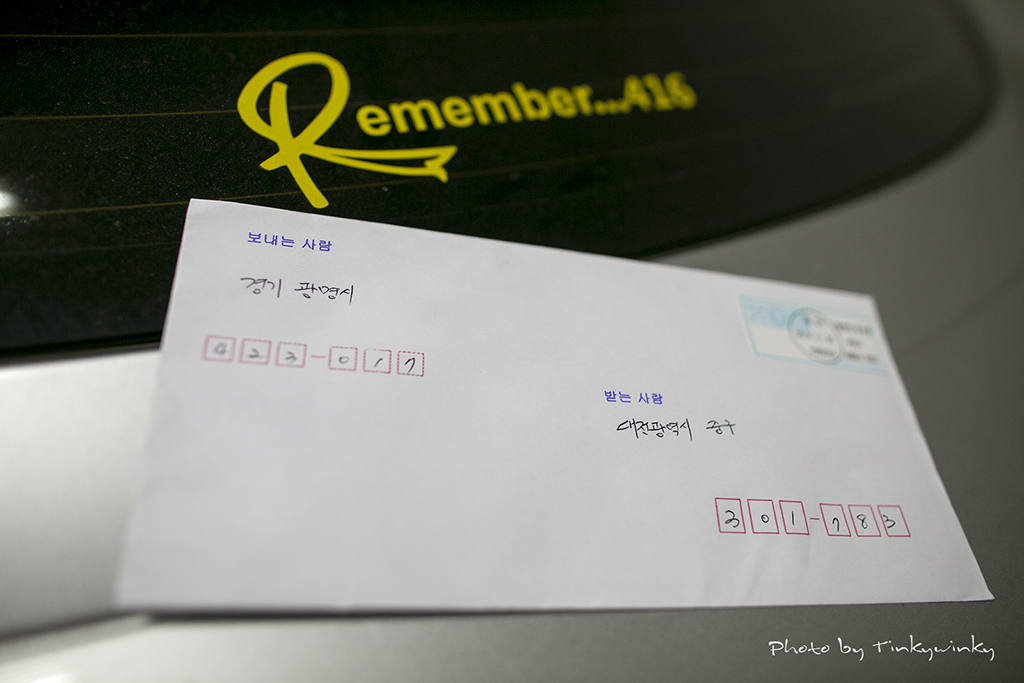 Remember...416
보내는 사람
경기 광명시
423-017
받는 사람
대전광역시 중구
301-783
Photo by Tinkywinky